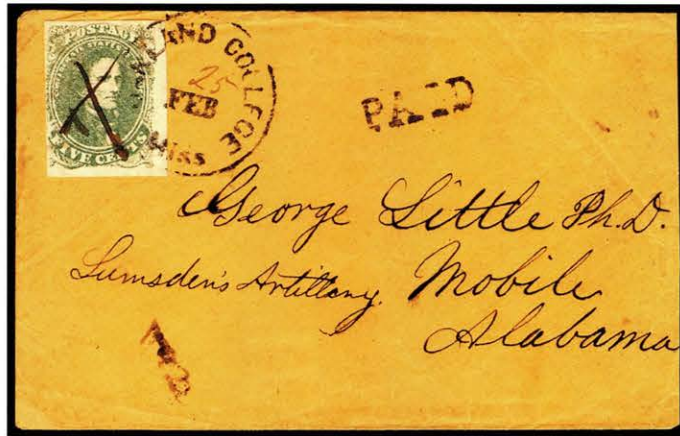 POSTAGE
FIVE CENTS
LAND COLLEGE
25
FEB
MISS
PAID
George Little Ph.D.
Lumsden's Artillery. Mobile
Alabama